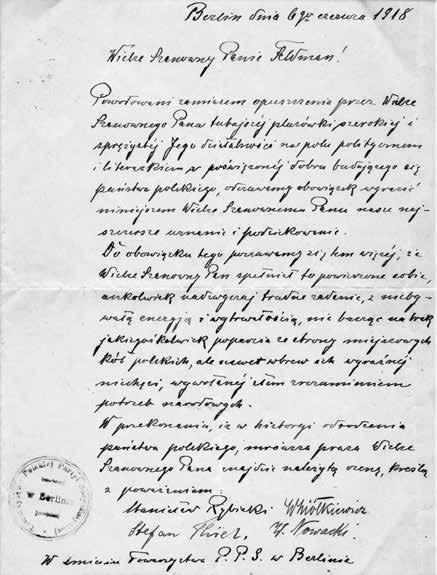 Berlin dnia 6go czerwca 1918
Wielce Szanowny Panie Feldman!
Powodowani zamiarem opuszczenia przez Wielce
Szanownego Pana tutejszej placówki, szerokiej i
sprężystej Jego działalności na polu politycznem
i literackiem, poświęconej dobru budującego się
państwa polskiego, odczuwamy obowiązek wyrazić
niniejszem Wielce Szanownemu Panu nasze naj-
szczersze uznanie i podziękowanie.
Do obowiązku tego poczuwamy się tem więcej, że
Wielce Szanowny Pan spełniał to powierzone sobie,
aczkolwiek nadzwyczaj trudne zadanie, z nieby-
wałą energją i wytrwałością, nie bacząc na brak
jakiegokolwiek poparcia ze strony miejscowych
kół polskich, ale nawet wbrew ich wyraźnej
niechęci, wywołanej złem zrozumieniem
potrzeb narodowych.
W przekonaniu, iż w historyi odrodzenia
państwa polskiego, mrówcza praca Wielce
Szanownego Pana znajdzie należytą ocenę, kreślą
z poważaniem:
Stanisław Rybicki
Stefan Nowacki
W imieniu Towarzystwa P.P.S. w Berlinie
w Berlinie